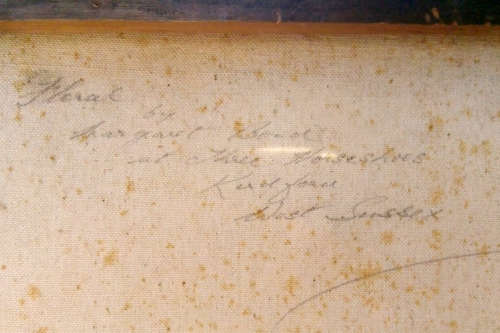 Floral
by
Margaret
at Three Horseshoes
Kirdford
West Sussex